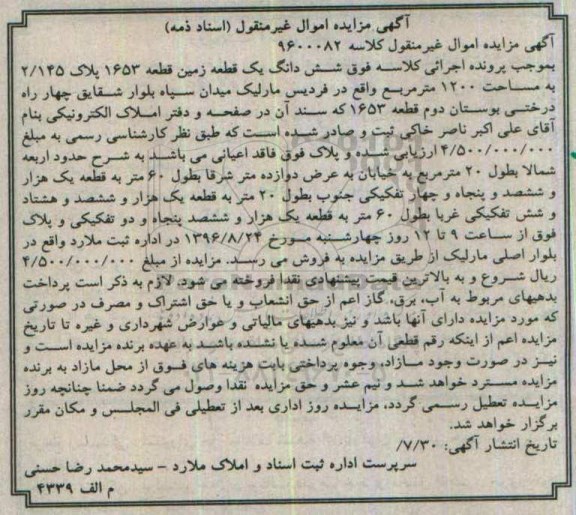 آگهی مزایده اموال غیرمنقول (اسناد ذمه)
آگهی مزایده اموال غیرمنقول کلاسه ۹۶۰۰۰۸۲
بموجب پرونده اجرائی کلاسه فوق شش دانگ یک قطعه زمین قطعه ۱۶۵۳ پلاک ۲/۱۴۵
به مساحت ۱۲۰۰ مترمربع واقع در فردیس مارلیک میدان سپاه بلوار شقایق چهار راه
درختی بوستان دوم قطعه ۱۶۵۳ که سند آن در صفحه و دفتر املاک الکترونیکی بنام
آقای علی اکبر ناصر خاکی ثبت و صادر شده است که طبق نظر کارشناسی رسمی به مبلغ
۴/۵۰۰/۰۰۰/۰۰۰ ارزیابی شده و پلاک فوق فاقد اعیانی می باشد به شرح حدود اربعه
شمالا بطول ۲۰ مترمربع به خیابان به عرض دوازده متر شرقا بطول ۶۰ متر به قطعه یک هزار
و ششصد و پنجاه و چهار تفکیکی جنوب بطول ۲۰ متر به قطعه یک هزار و ششصد و هشتاد
و شش تفکیکی غربا بطول ۶۰ متر به قطعه یک هزار و ششصد پنجاه و دو تفکیکی و پلاک
فوق از ساعت ۹ تا ۱۲ روز چهارشنبه مورخ ۱۳۹۶/۸/۲۴ در اداره ثبت ملارد واقع در
بلوار اصلی مارلیک از طریق مزایده به فروش می رسد. مزایده از مبلغ ۴/۵۰۰/۰۰۰/۰۰۰
ریال شروع و به بالاترین قیمت پیشنهادی نقدا فروخته می شود. لازم به ذکر است پرداخت
بدهیهای مربوط به آب، برق، گاز اعم از حق انشعاب و یا حق اشتراک و مصرف در صورتی
که مورد مزایده دارای آنها باشد و نیز بدهیهای مالیاتی و عوارض شهرداری و غیره تا تاریخ
مزایده اعم از اینکه رقم قطعی آن معلوم شده یا نشده باشد به عهده برنده مزایده است و
نیز در صورت وجود مازاد، وجوه پرداختی بابت هزینه های فوق از محل مازاد به برنده
مزایده مسترد خواهد شد و نیم عشر و حق مزایده نقدا وصول می گردد ضمنا چنانچه روز
مزایده تعطیل رسمی گردد، مزایده روز اداری بعد از تعطیلی فی المجلس و مکان مقرر
برگزار خواهد شد.
تاریخ انتشار آگهی: ۷/۳۰/
سرپرست اداره ثبت اسناد و املاک ملارد - سیدمحمد رضا حسنی
م الف ۴۳۳۹